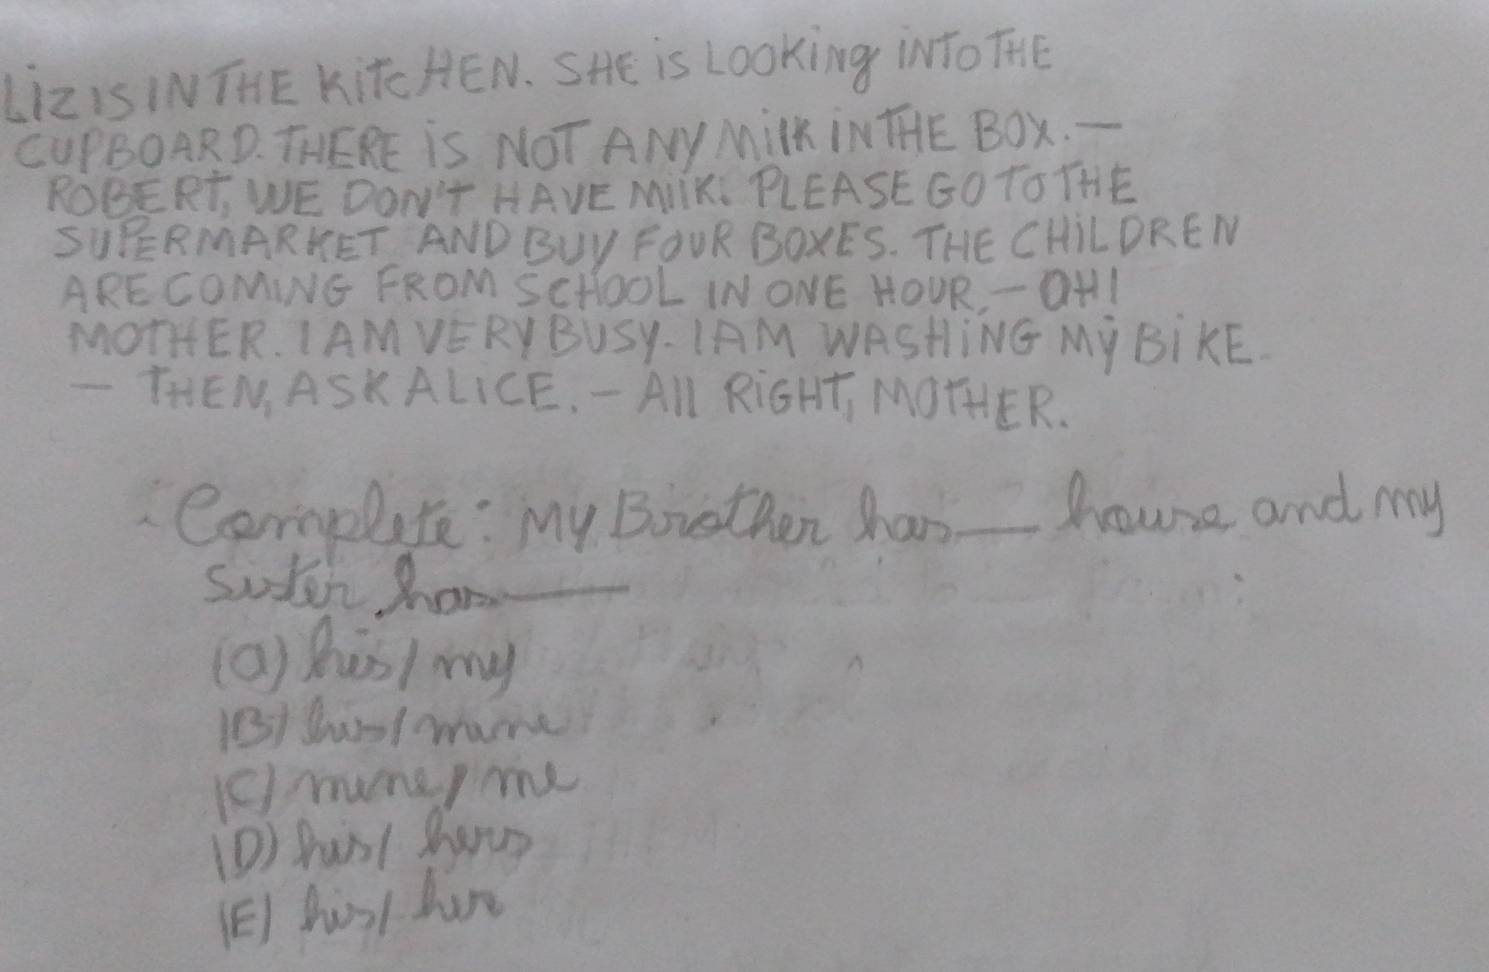 LiZ IS IN THE KiTCHEN. SHE iS LOOKiNg iNTO THE
CUPBOARD. THERE iS NOT ANY MilK iN THE BOX. —
ROBERT, WE DON'T HAVE MilK. PLEASE GO TO THE
SUPERMARKET AND BUY FOUR BOXES. THE CHiLDREN
ARE COMING FROM SCHOOL IN ONE HOUR. — OH!
MOTHER. I AM VERY BUSY. I AM WASHiNG MY BiKE.
— THEN, ASK ALiCE. — All RiGHT, MOTHER.
Complete: My Brother has ___ house and my
sister has ___
(A) his/ my
(B) his/ mine
(C) mine/ me
(D) his/ hers
(E) his/ her